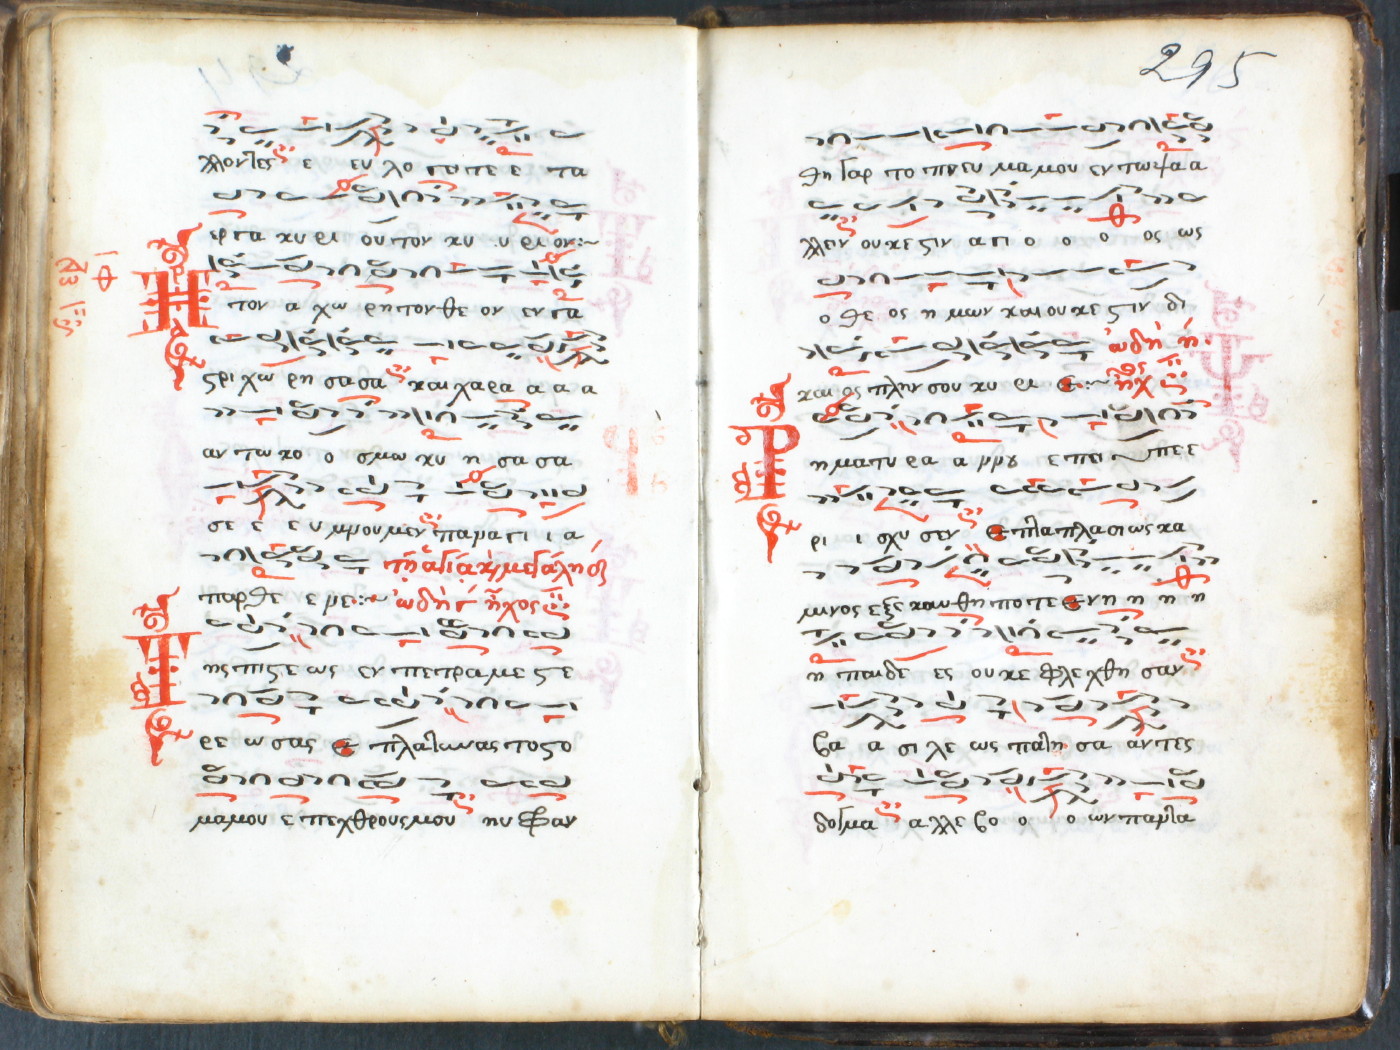 λλοντες ε ευ λο γει τε ε τα
εργα κυ ρι ου τον κυ υ ρι ον:~
Η τον α χω ρη τον θε ον εν γα
στρι χω ρη σα σα και χαρα α α α
αν τω κο ο σμω κυ η σα σα
σε ε ε υ μνου μεν παρα γι ι α
παρθε ε νε:~ ὠδὴ γ ἦχος
Τ ης πι στε ως εν πε τρα με στε
ρε ω σας ε πλα τυνας το στο
μα μου ε πεχθρους μου ηυ φραν
295
θη γαρ το πνευ μα μου εν τω ψα α
λλειν ου κε στιν α γι ο ο ο ος ως
ο θε ος η μων και ου κε στιν δι
ὠδὴ
και ος πλην σου κυ ρι ε:~ ἦχ
Τ η μα τυ ραννου ε πει πε ε
ρι ι σχυ σεν ε πλα πλα σι ως κα
μινος εξε καυ θη πο τε Ε νη η η η
η παιδε ες ου κε φλε χθη σαν
βα α σι λε ως πατη σα αν τες
δογμα α λλε βο ο ο ων παντα